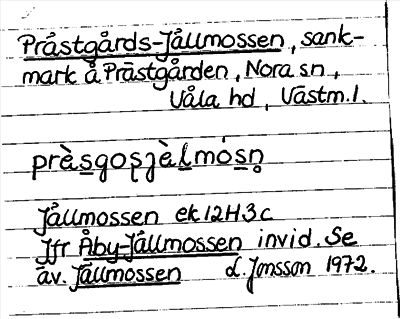 Prästgårds-Jällmossen, sank-
mark å Prästgården, Nora sn,
Våla hd, Västm.l.
prὰsgoʂjὰḷmósn̥
Jällmossen ek 12H3c
Jfr Åby-Jällmossen invid. Se
äv. Jällmossen L. Jonsson 1972.